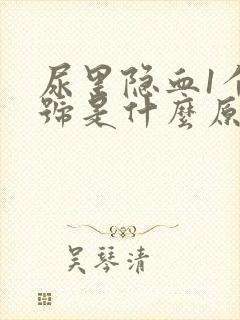 尿里隐血1个
號是什麼原
吴琴清